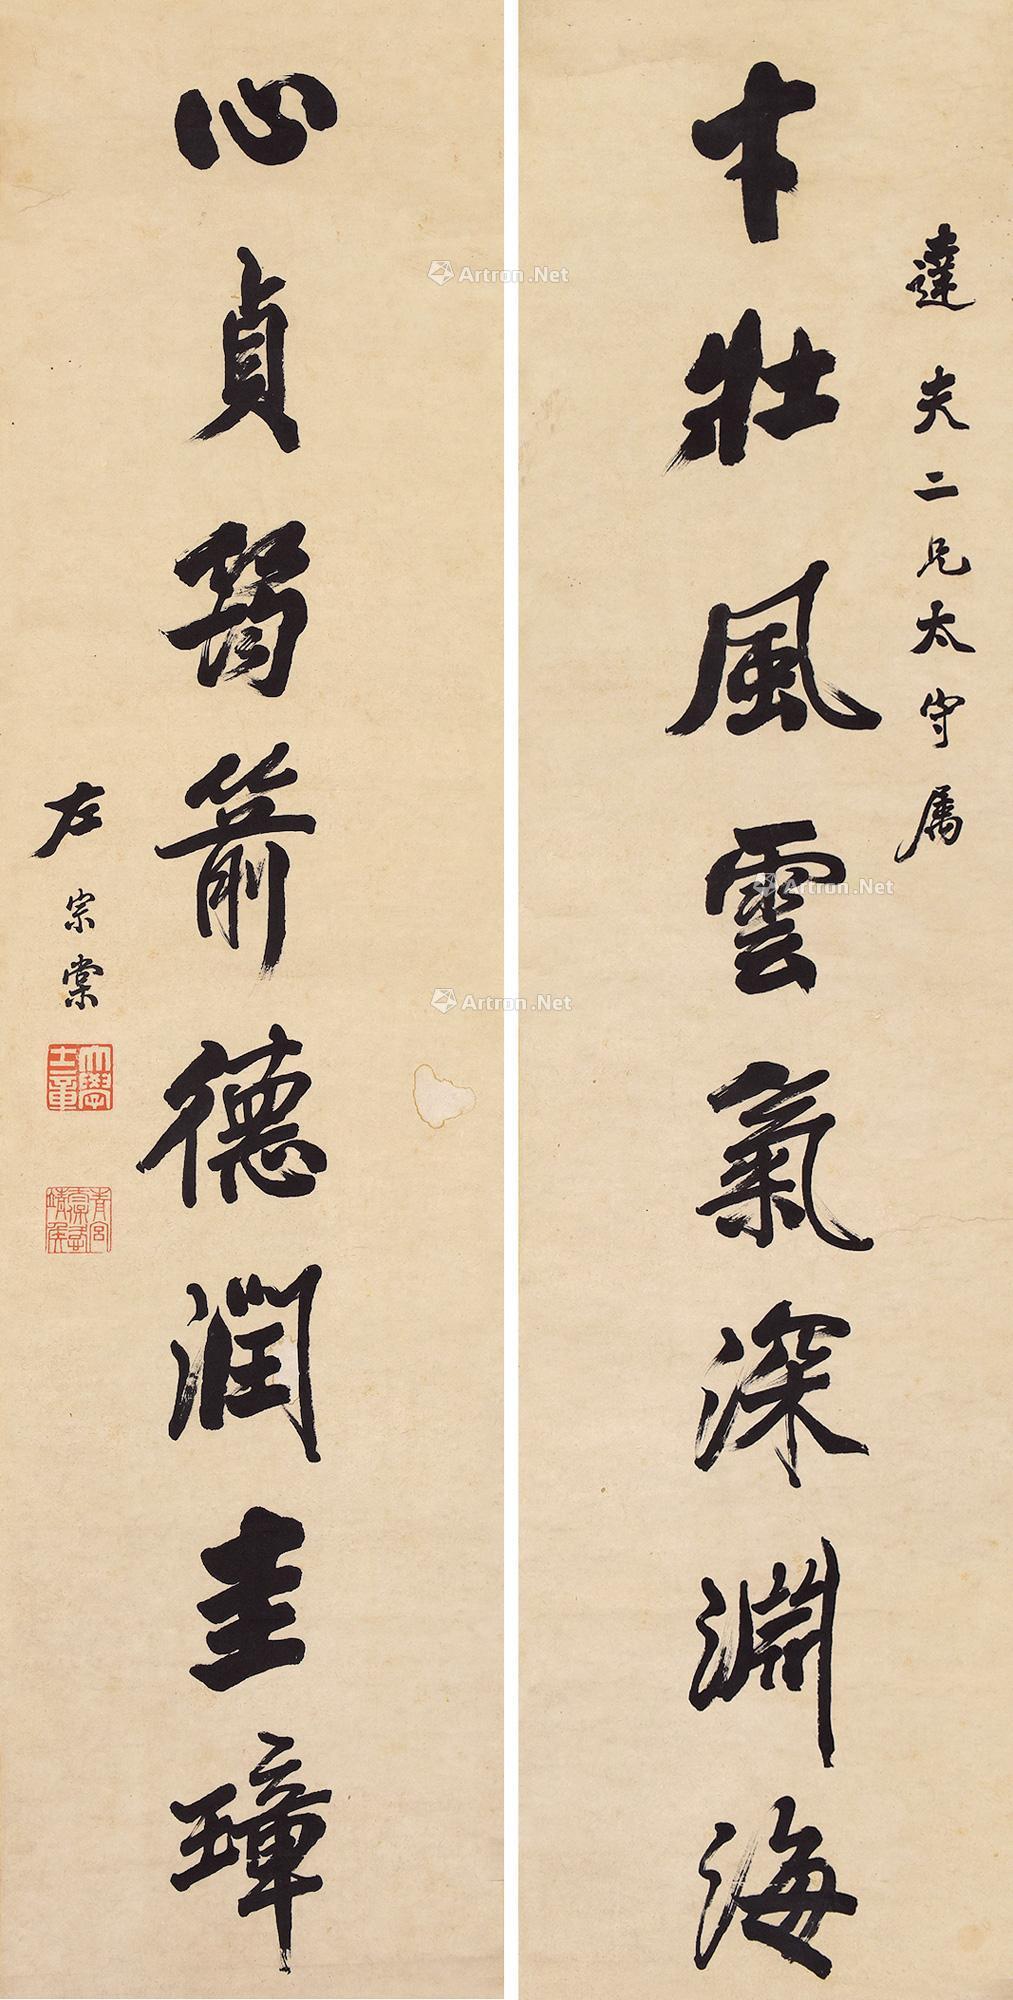 達夫二兄太守属
才壯風雲氣深淵海
心貞筠箭德潤圭璋
左宗棠
大學士章
Artron.Net
Artron.Net
Artron.Net